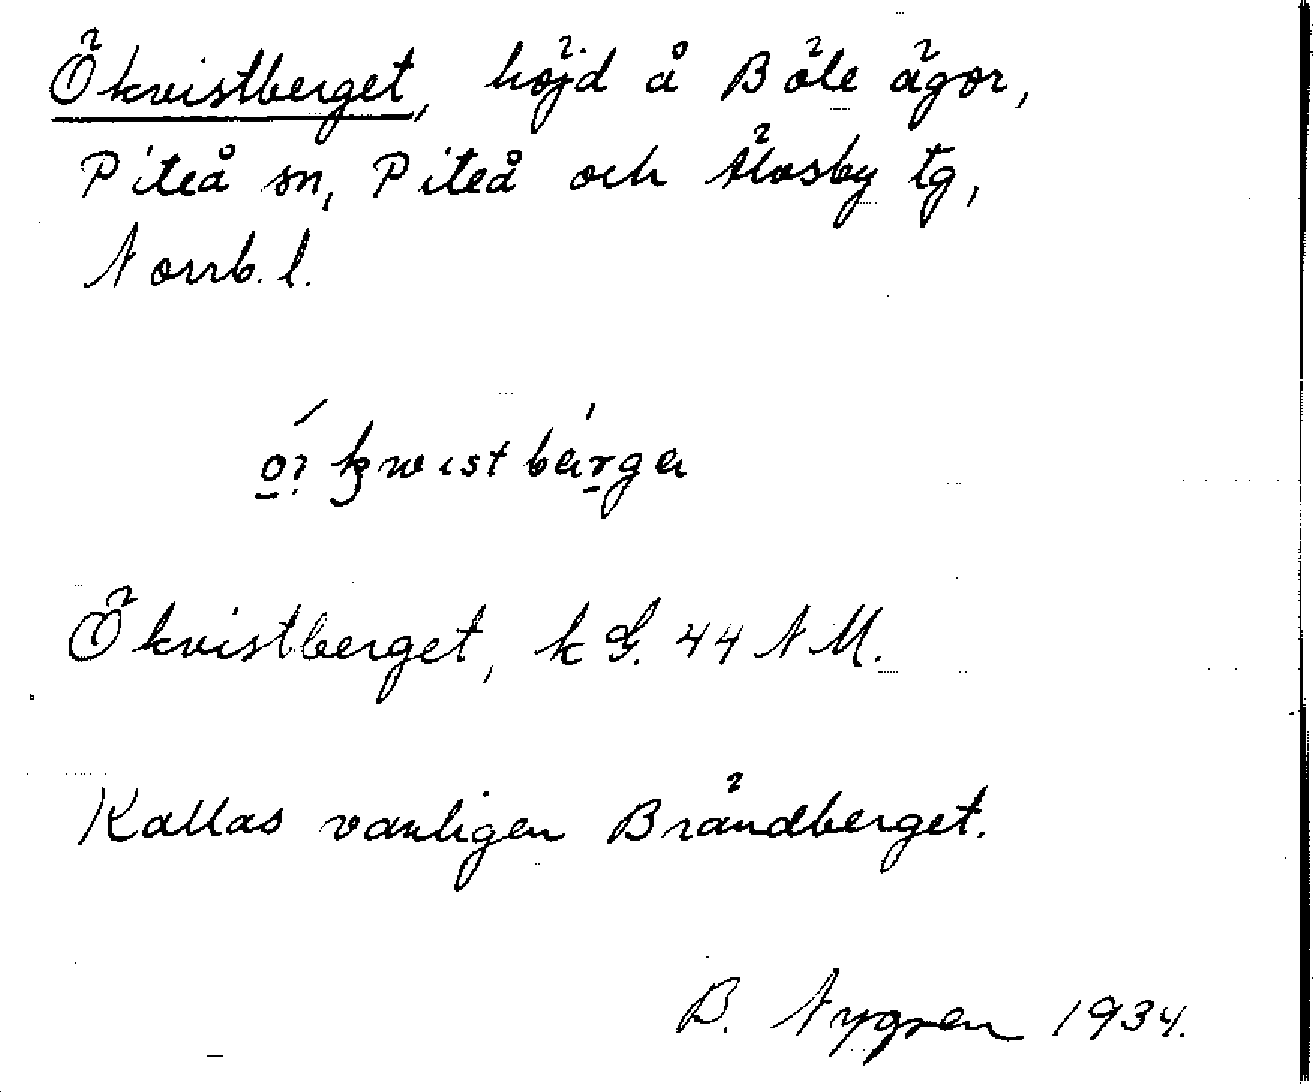 Ökvistberget, höjd å Böle ägor,
Piteå sn, Piteå och Älvsby tg,
Norrb. l.
Ökvistberget, k G. 44 N M.
Kallas vanligen Brändberget.
B. Nygren 1934.